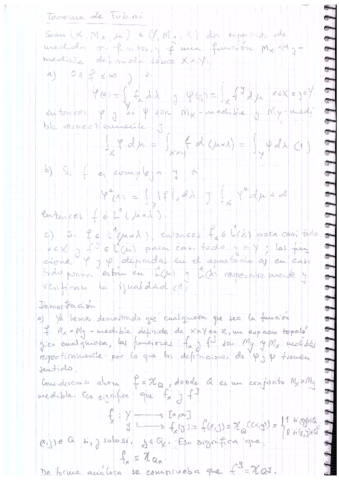 Teorema de Fubini
Sean (X, Mx, μ) e (Y, My, λ) dos espacios de
medida σ-finitos y f una función Mx × My-
medible definida sobre X×Y.
a) Si 0≤f≤∞ y si
φ(x)=∫_Y f_x dλ y ψ(y)=∫_X f^y dμ x∈X y∈Y
entonces φ y ψ son Mx-medible y My-medi
ble respectivamente y
∫_X φ dμ = ∫_{X×Y} f d(μ×λ) = ∫_Y ψ dλ (1)
b) Si f es compleja y si
φ*(x)=∫_Y |f|_x dλ y ∫_X φ* dμ < ∞
entonces f ∈ L¹(μ×λ).
c) Si f ∈ L¹(μ×λ), entonces f_x ∈ L¹(λ) para casi todo
x∈X y f^y ∈ L¹(μ) para casi todo y∈Y y las fun
ciones φ y ψ definidas en el apartado a) en casi
todo punto están en L¹(μ) y L¹(λ) respectivamente y
verifican la igualdad (1)
Demostración
a) Ya hemos demostrado que cualquiera que sea la función
f Mx×My-medible definida de X×Y en Z, un espacio topoló
gico cualquiera, las funciones f_x y f^y son My y Mx medibles
respectivamente por lo que las definiciones de φ y ψ tienen
sentido.
Consideremos ahora f = χ_Q, donde Q es un conjunto Mx×My
medible. Eso significa que f_x y f^y
f_x : Y → [0,∞]
y → f_x(y) = f(x,y) = χ_Q((x,y)) = { 1 si (x,y)∈Q 0 si (x,y)∉Q
(x,y)∈Q si, y solo si, y∈Q_x. Eso significa que
f_x = χ_{Q_x}
De forma análoga se comprueba que f^y = χ_{Q^y}.